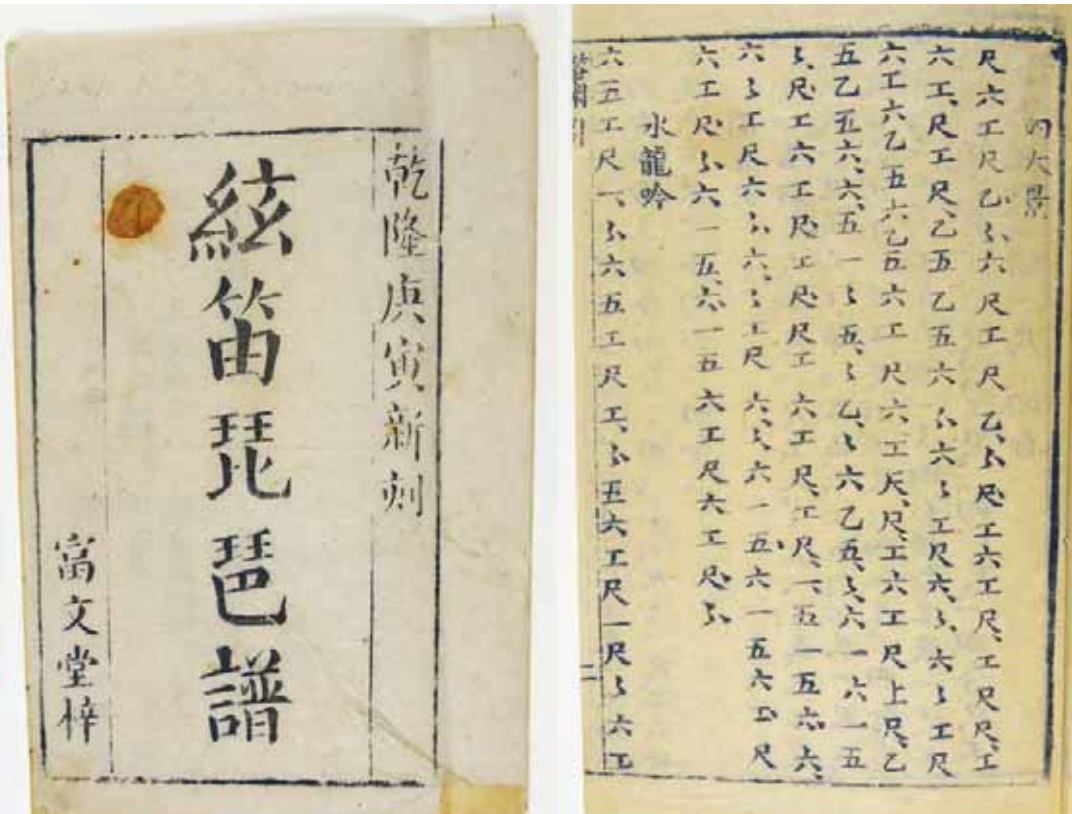 乾隆庚寅新刻
絃笛琵琶譜
富文堂梓
四大景
尺六工尺乙ㄙ六尺工尺乙、ㄙ尺工六工尺、工尺尺、工
六工、尺工尺、乙五乙五六ㄙ六ㄙ工尺六、ㄙ、六ㄙ工尺
六工六乙五六乙五六工尺六工尺、尺、工六工尺上尺、乙
五乙五六、六、五一ㄙ五、ㄙ乙、ㄙ六乙五、ㄙ、六一六一五
ㄙ、尺工六工尺工尺尺工六工尺、工尺、一五一五六、六、
六ㄙ工尺六ㄙ六、ㄙ工尺六、ㄙ、六一五六一五六工尺
六工尺ㄙ六一五、六一五六工尺六工尺ㄙ
水龍吟
六五工尺一、ㄙ六五工尺工、ㄙ五六工尺一尺ㄙ六工